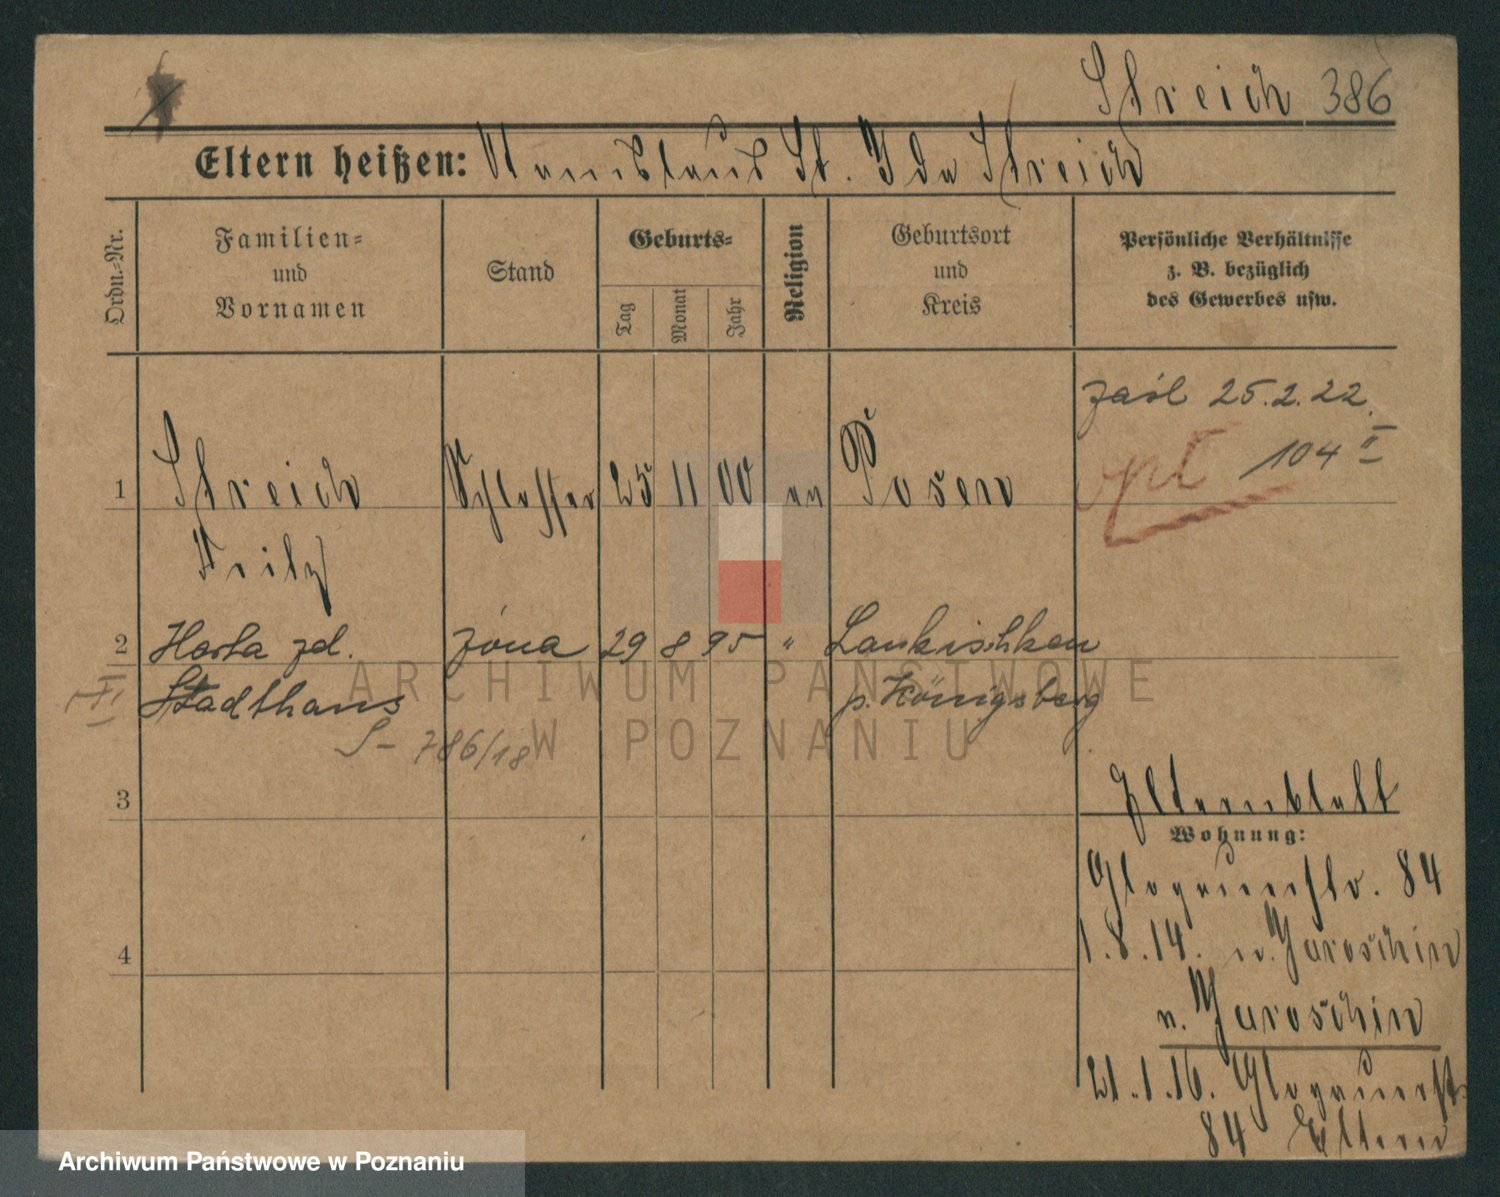 Streich 386
Eltern heißen: St. Ida Streich
Ordn.-Nr.
Familien-
und
Vornamen
Stand
Geburts-
Tag
Monat
Jahr
Religion
Geburtsort
und
Kreis
Persönliche Verhältnisse
z. B. bezüglich
des Gewerbes usw.
zaśl 25.2.22.
104 II
1 Streich Schlosser 25 11 00 ev Posen
Fritz
2 Herta zd. żona 29 8 95 " Laukischken
Stadthaus p. Königsberg
S- 786/18
3
Elternblatt
Wohnung:
Glogauerstr. 84
1.8.14. n. Jaroschin
4
n. Jaroschin
21.1.16. Glogauerst.
84 Eltern
ARCHIWUM PAŃSTWOWE
W POZNANIU
Archiwum Państwowe w Poznaniu